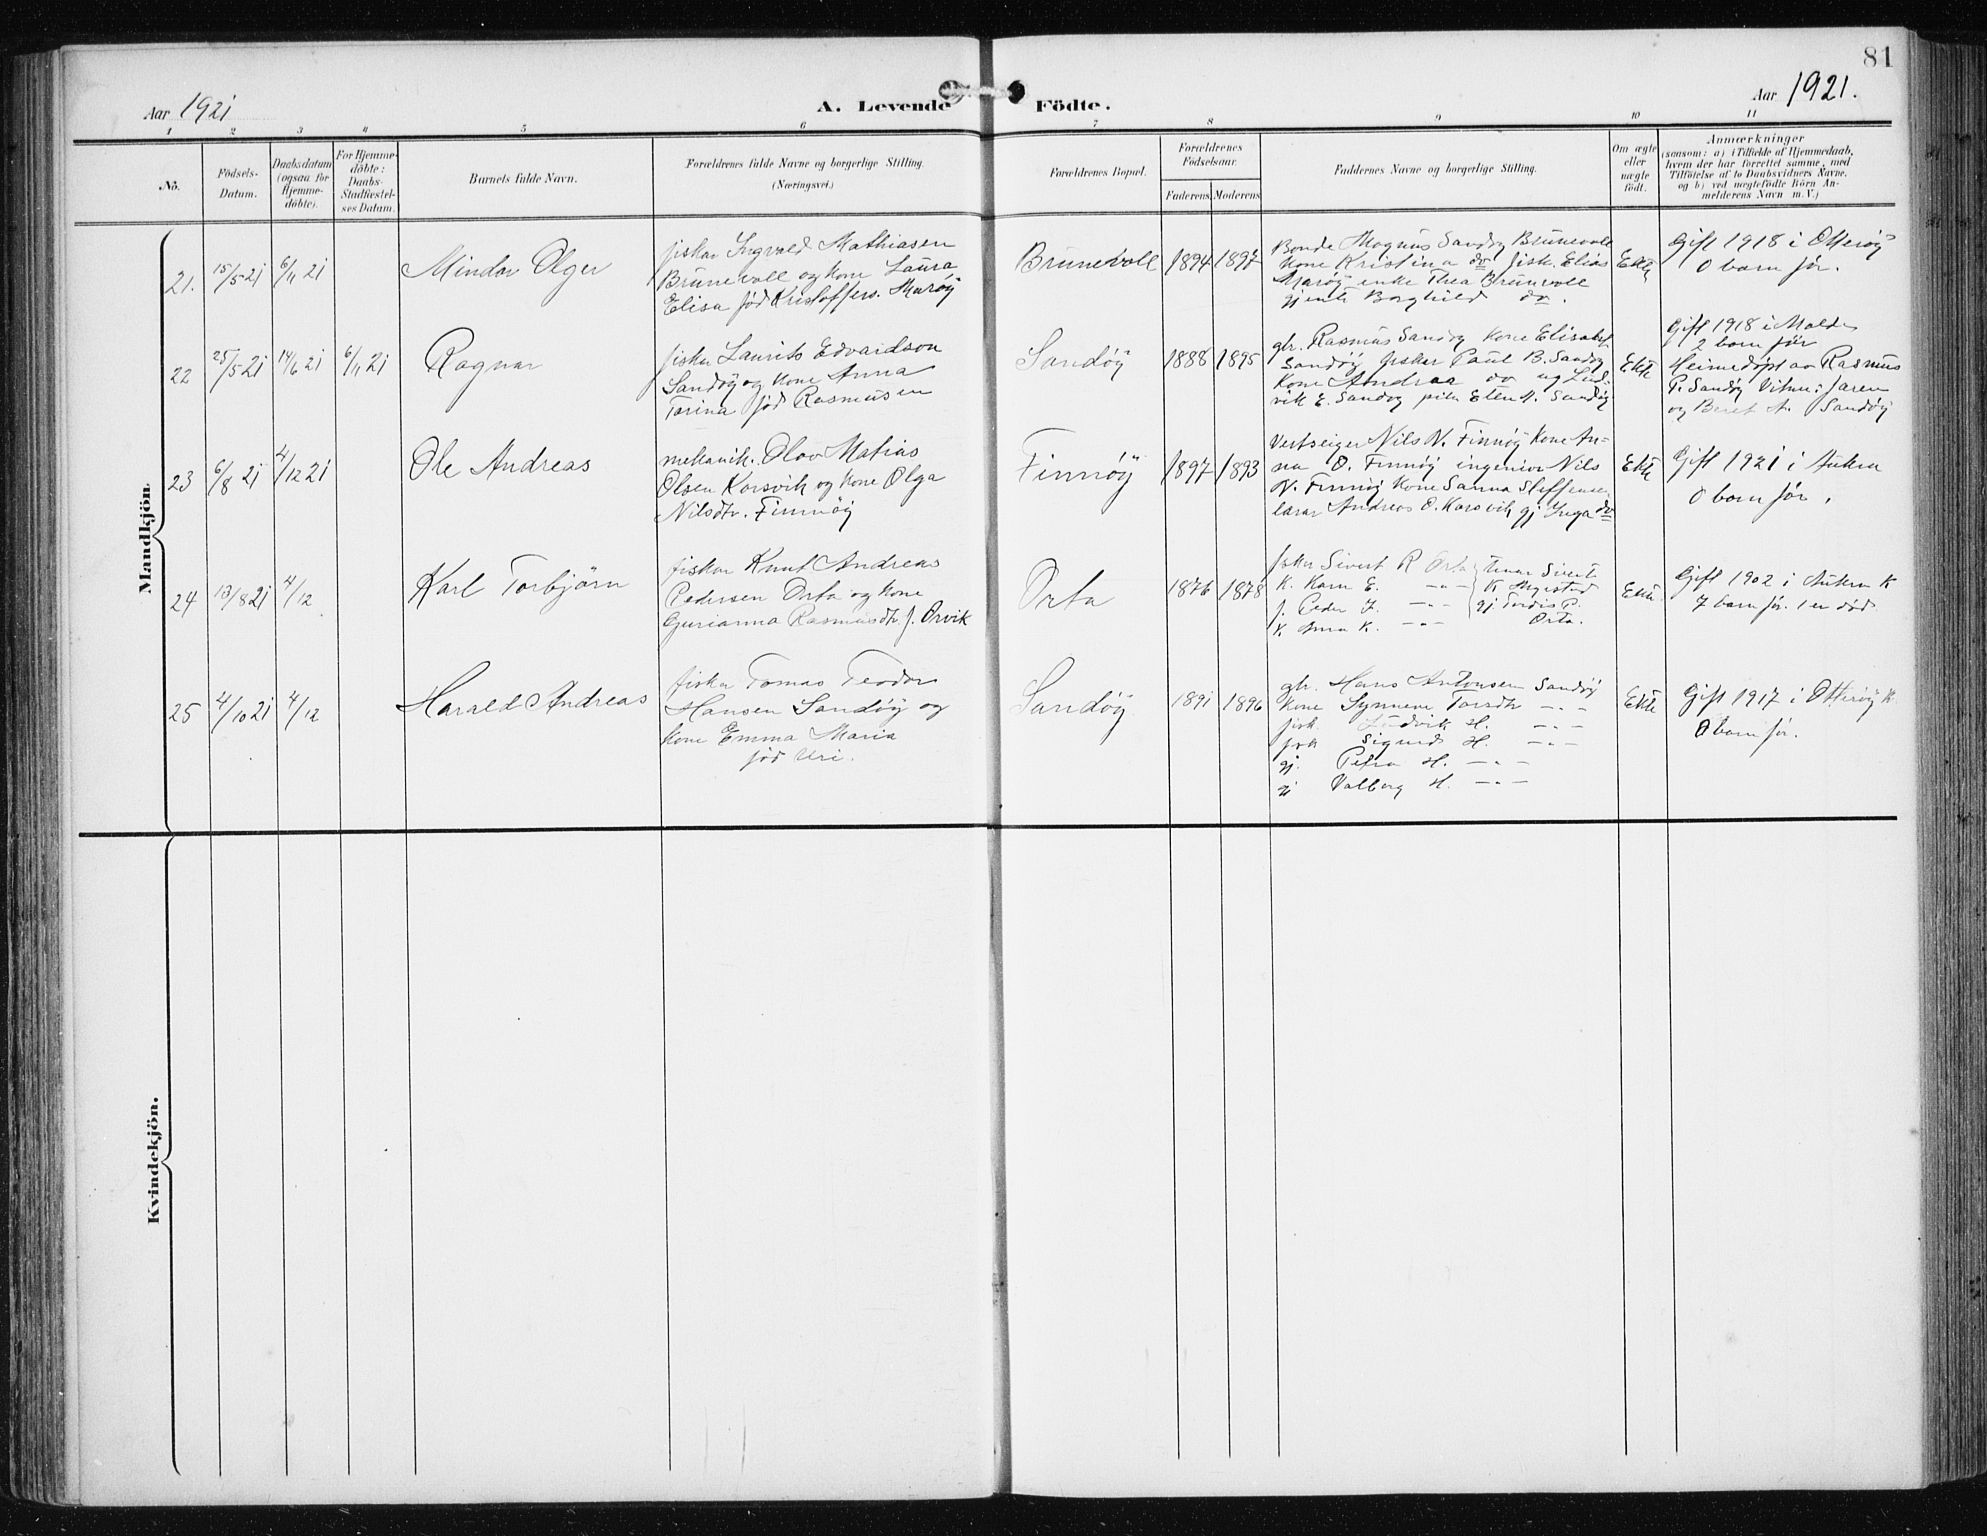 81
Aar 1921
A. Levende Födte.
Aar 1921.
1 2 3 4 5 6 7 8 9 10 11
No.
Födsels-
Datum.
Daabsdatum
(ogsaa for
Hjemme-
döbte).
For Hjemme-
döbte:
Daabs-
Stadfæstel-
ses Datum.
Barnets fulde Navn.
Forældrenes fulde Navne og borgerlige Stilling
(Næringsvei.)
Forældrenes Bopæl.
Forældrenes
Födselsaar.
Faderens. Moderens
Faddernes Navne og borgerlige Stilling.
Om ægte
eller
uægte
födt.
Anmærkninger
(saasom: a) i Tilfælde af Hjemmedaab,
hvem der har forrettet samme, med
Tilföielse af to Daabsvidners Navne,
og b) ved uægtefödte Börn An-
melderens Navn m. V.)
Mandkjön.
21.
15/5 21
6/11 21
Mindor Olger
fisker Ingvald Mathiasen
Brunevoll og kone Laura
Elisa fød Kristoffers. Marøy
Brunevoll
1894
1897
Bonde Magnus Sandøy Brunevoll
kone Kristina do fisk. Elias
Marøy enke Thea Brunevoll
gjente Borghild do.
Ekte
Gift 1918 i Otterøy
0 born før.
22
25/5 21
14/6 21
6/11 21
Ragnar
fisker Laurits Edvardson
Sandøy og kone Anna
Tarina fød Rasmusen
Sandøy
1888
1895
gbr. Rasmus Sandøy kone Elisabet
Sandøy fisker Paul B. Sandøy
kone Andrea do og Lud-
vik E. Sandøy pike Elen M. Sandøy
Ekte
Gift 1918 i Molde
2 born før
Heimedøpt av Rasmus
P. Sandøy Vitne: faren
og Beret A. Sandøy
23
6/8 21
4/12 21
Ole Andreas
mekanik. Olav Matias
Olsen Korsvik og kone Olga
Nilsdtr. Finnøy
Finnøy
1897
1893
Verftseiger Nils N. Finnøy kone An-
na O. Finnøy ingeniør Nils
N. Finnøy kone Sanna Steffense
lærar Andreas O. Korsvik gj Inga do
Ekte
Gift 1921 i Aukra
0 born før.
24
13/8 21
4/12
Karl Torbjørn
fisker Knut Andreas
Pedersen Orta og kone
Gurianna Rasmusdtr. f. Orvik
Orta
1876
1878
fisker Sivert R Orta
K. Karn E. — " —
f. Peder K. — " —
K. Anna K. — " —
Sivert
gj Tordis P.
Orta.
Ekte
Gift 1902 i Aukra K
7 born før. 1 er død
25
4/10 21
4/12
Harald Andreas
fisker Tomas Teodor
Hansen Sandøy og
kone Emma Maria
fød Uri.
Sandøy
1891
1896
gbr. Hans Antonsen Sandøy
kone Synneve Torsdtr — " —
fisk. Ludvik H. — " —
fisk Sigurd H. — " —
gj. Petra H. — " —
gj Valborg H. — " —
Ekte
Gift 1917 i Otterøy K
0 born før.
Kvindekjön.